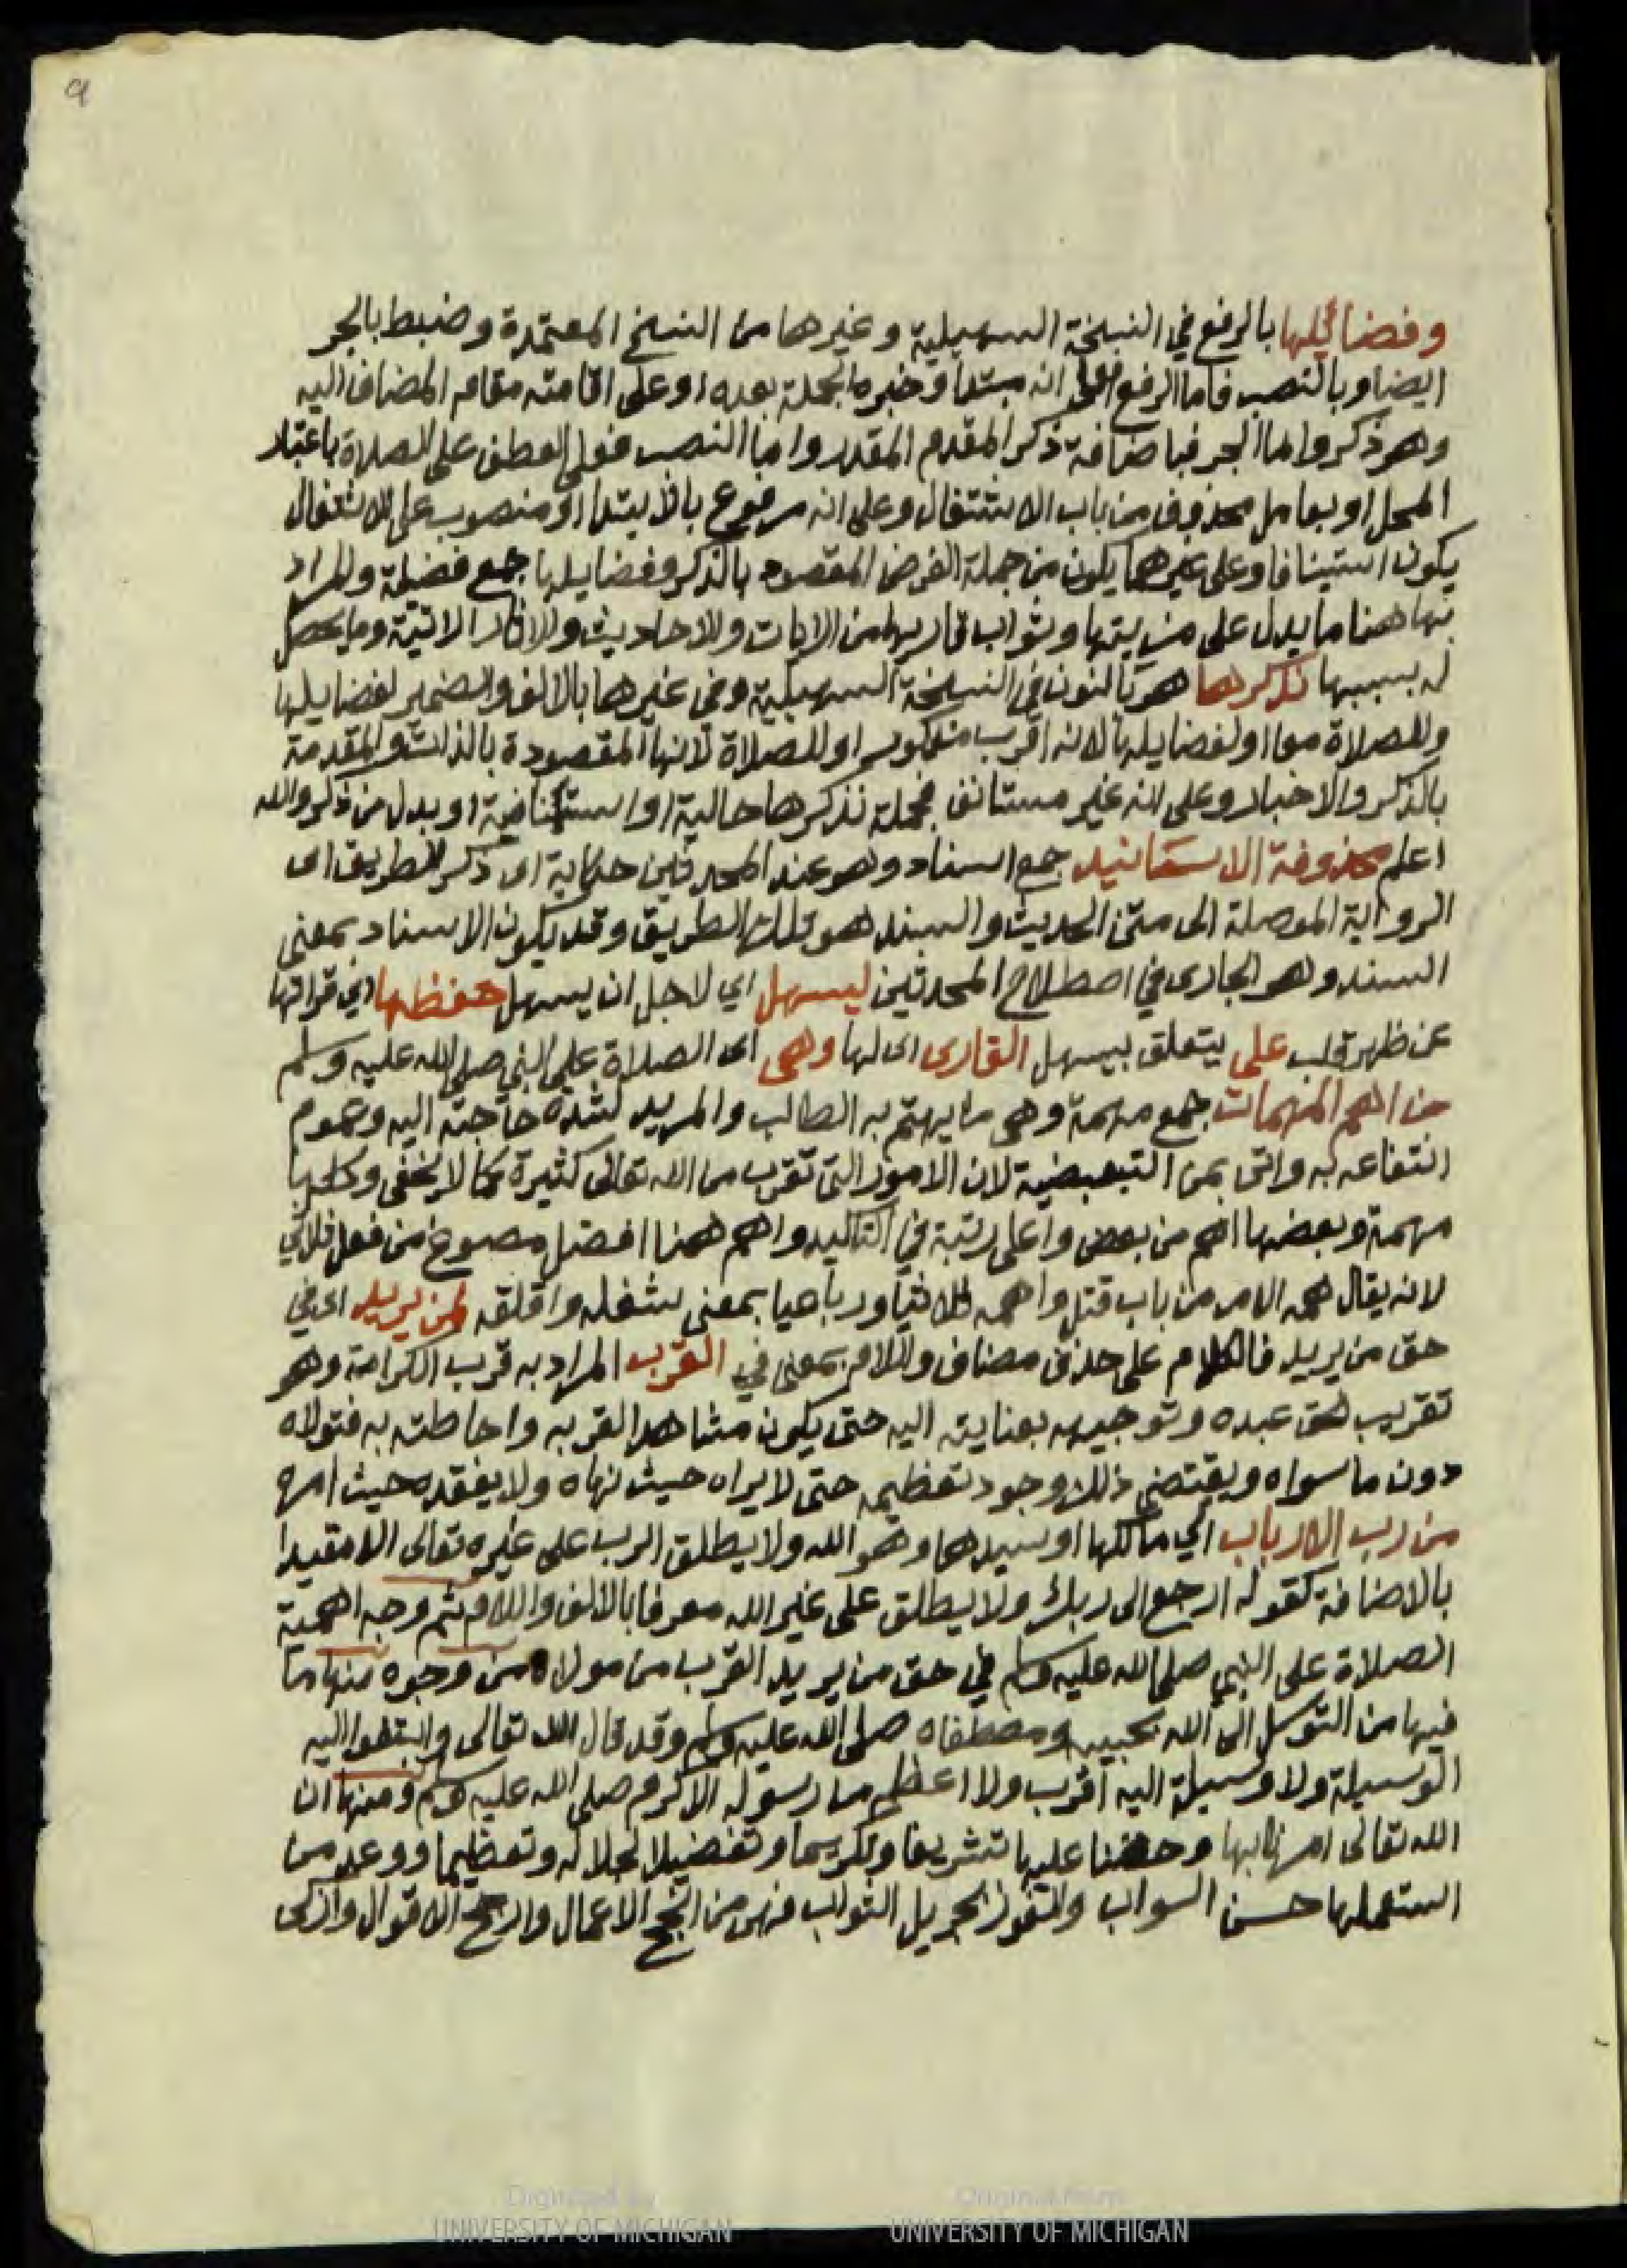 9
وفضائيلها بالرفع في النسخة السهيلية وغيرها من النسخ المعتمدة وضبط بالجر
ايضا وبالنصب فاما الرفع فعلى انه مبتدا وخبره الجملة بعده او على اقامته مقام المضاف اليه
وهو ذكر واما الجر فباضافة ذكر المقدم المقدر واما النصب فعلى العطف على الصلاة باعتبار
المحل او بعامل محذوف من باب الاشتغال وعلى انه مرفوع بالابتدا او منصوب على الاشتغال
يكون استينافا وعلى غيرهما يكون من جملة الغرض المقصود بالذكر وفضايلها جمع فضيلة والمراد
بها هنا ما يدل على مزيتها وثواب قاريها من الايات والاحاديث والاثار الاتية وما يحصل
له بسببها نذكرها هو بالنون في النسخة السهيلية وفي غيرها بالالف والضمير لفضايلها
وللصلاة معا او لفضايلها لانه اقرب مذكور او للصلاة لانها المقصودة بالذات والمقدمة
بالذكر والاخبار وعلى انه غير مستانف فجملة نذكرها حالية او استينافية او بدل من ذكر والله
اعلم محذوفة الاسانيد جمع اسناد وهو عند المحدثين حكاية اى ذكر الطريق اى
الرواية الموصلة الى متن الحديث والسند هو تلك الطريق وقد يكون الاسناد بمعنى
السند وهو الجارى في اصطلاح المحدثين ليسهل اي لاجل ان يسهل حفظها اي قراتها
عن ظهر قلب على يتعلق بيسهل القارى اى لها وهي اى الصلاة على النبي صلى الله عليه وسلم
من اهم المهمات جمع مهمة وهي ما يهتم به الطالب والمريد لشدة حاجته اليه وعموم
انتفاعه به واتى بمن التبعيضية لان الامور التي تقرب من الله تعالى كثيرة كما لا يخفى وكلها
مهمة وبعضها اهم من بعض واعلى رتبة في التاكيد واهم هنا افضل مصوغ من فعل ثلاثي
لانه يقال همه الامر من باب قتل واهمه ثلاثيا ورباعيا بمعنى شغله واقلقه لمن يريد اى في
حق من يريد فالكلام على حذف مضاف واللام بمعنى في القرب المراد به قرب الكرامة وهو
تقريب الحق عبده وتوجيهه بعنايته اليه حتى يكون مشاهدا لقربه واحاطته به فتولاه
دون ما سواه ويقتضي ذلك وجود تعظيمه حتى لا يراه حيث نهاه ولا يفقده حيث امره
من رب الارباب اي مالكها او سيدها وهو الله ولا يطلق الرب على غيره تعالى الا مقيدا
بالاضافة كقوله ارجع الى ربك ولا يطلق على غير الله معرفا بالالف واللام ثم وجه اهمية
الصلاة على النبي صلى الله عليه وسلم في حق من يريد القرب من مولاه من وجوه منها ما
فيها من التوسل الى الله بحبيبه ومصطفاه صلى الله عليه وسلم وقد قال الله تعالى وابتغوا اليه
الوسيلة ولا وسيلة اليه اقرب ولا اعظم من رسوله الاكرم صلى الله عليه وسلم ومنها ان
الله تعالى امرنا بها وحضنا عليها تشريفا وتكريما وتفضيلا لجلاله وتعظيما ووعد من
استعملها حسن الـواب والفوز بجزيل الثواب فهي من انجح الاعمال وارجح الاقوال وازكى
Digitized by
UNIVERSITY OF MICHIGAN
Original from
UNIVERSITY OF MICHIGAN